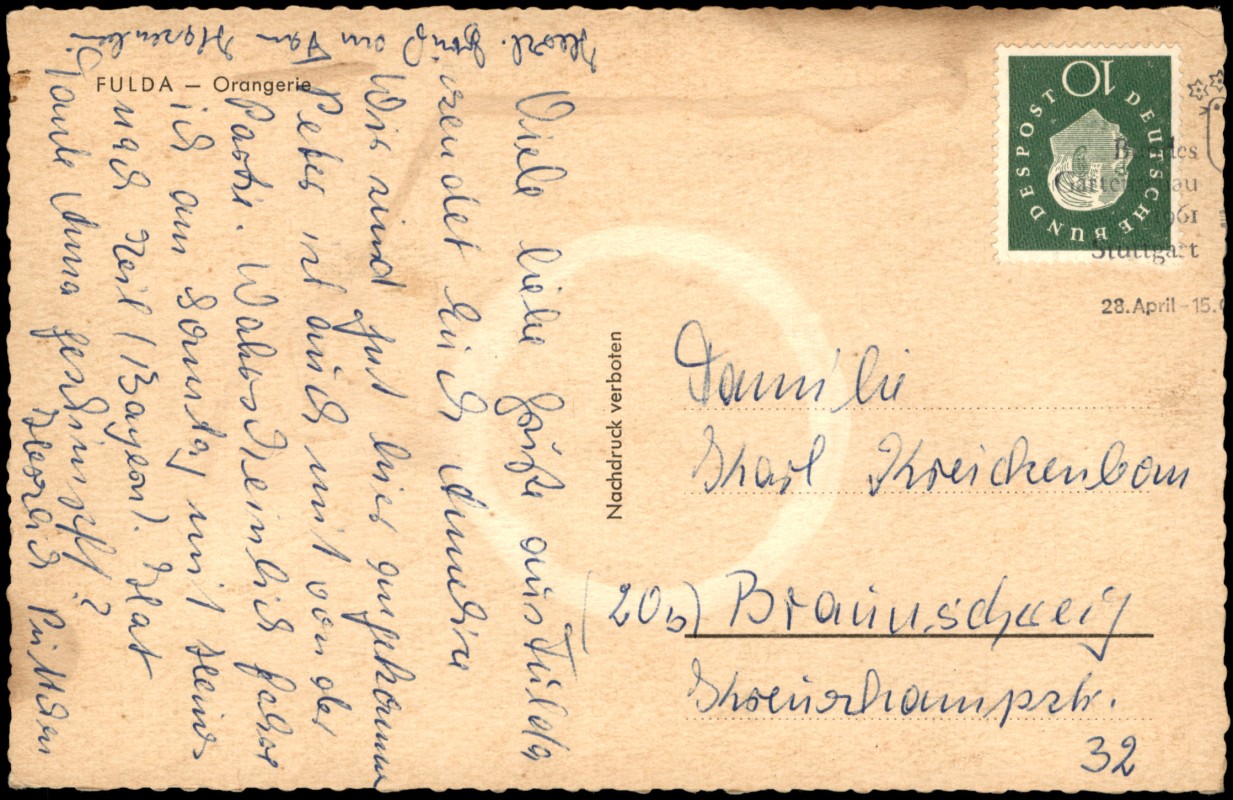 FULDA — Orangerie
Viele liebe Grüße aus Fulda
sendet Euch
Wir sind gut hier angekommen
Peter ist auch mit von der
Partie. Wahrscheinlich fahre
ich am Sonntag mit Heinz
nach Zeil (Bayern). Hat
Tante Anna geschimpft?
Herzl. Gruß an
Nachdruck verboten
10
DEUTSCHE BUNDESPOST
Bundes
Gartenschau
1961
Stuttgart
28. April - 15.
Familie
Karl
(20b) Braunschweig
Kreuzkampstr.
32